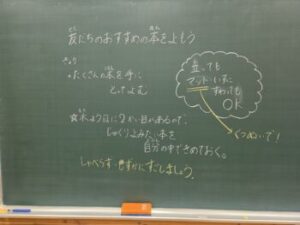 友だちのおすすめの本をよもう
・たくさんの本を手に
とってよむ
☆木よう日に2かい目があるので、
じっくりよみたい本を
自分の中できめておく。
しゃべらず・しずかにすごしましょう。
立っても
マットやいすに
すわっても
OK
くつぬいで!